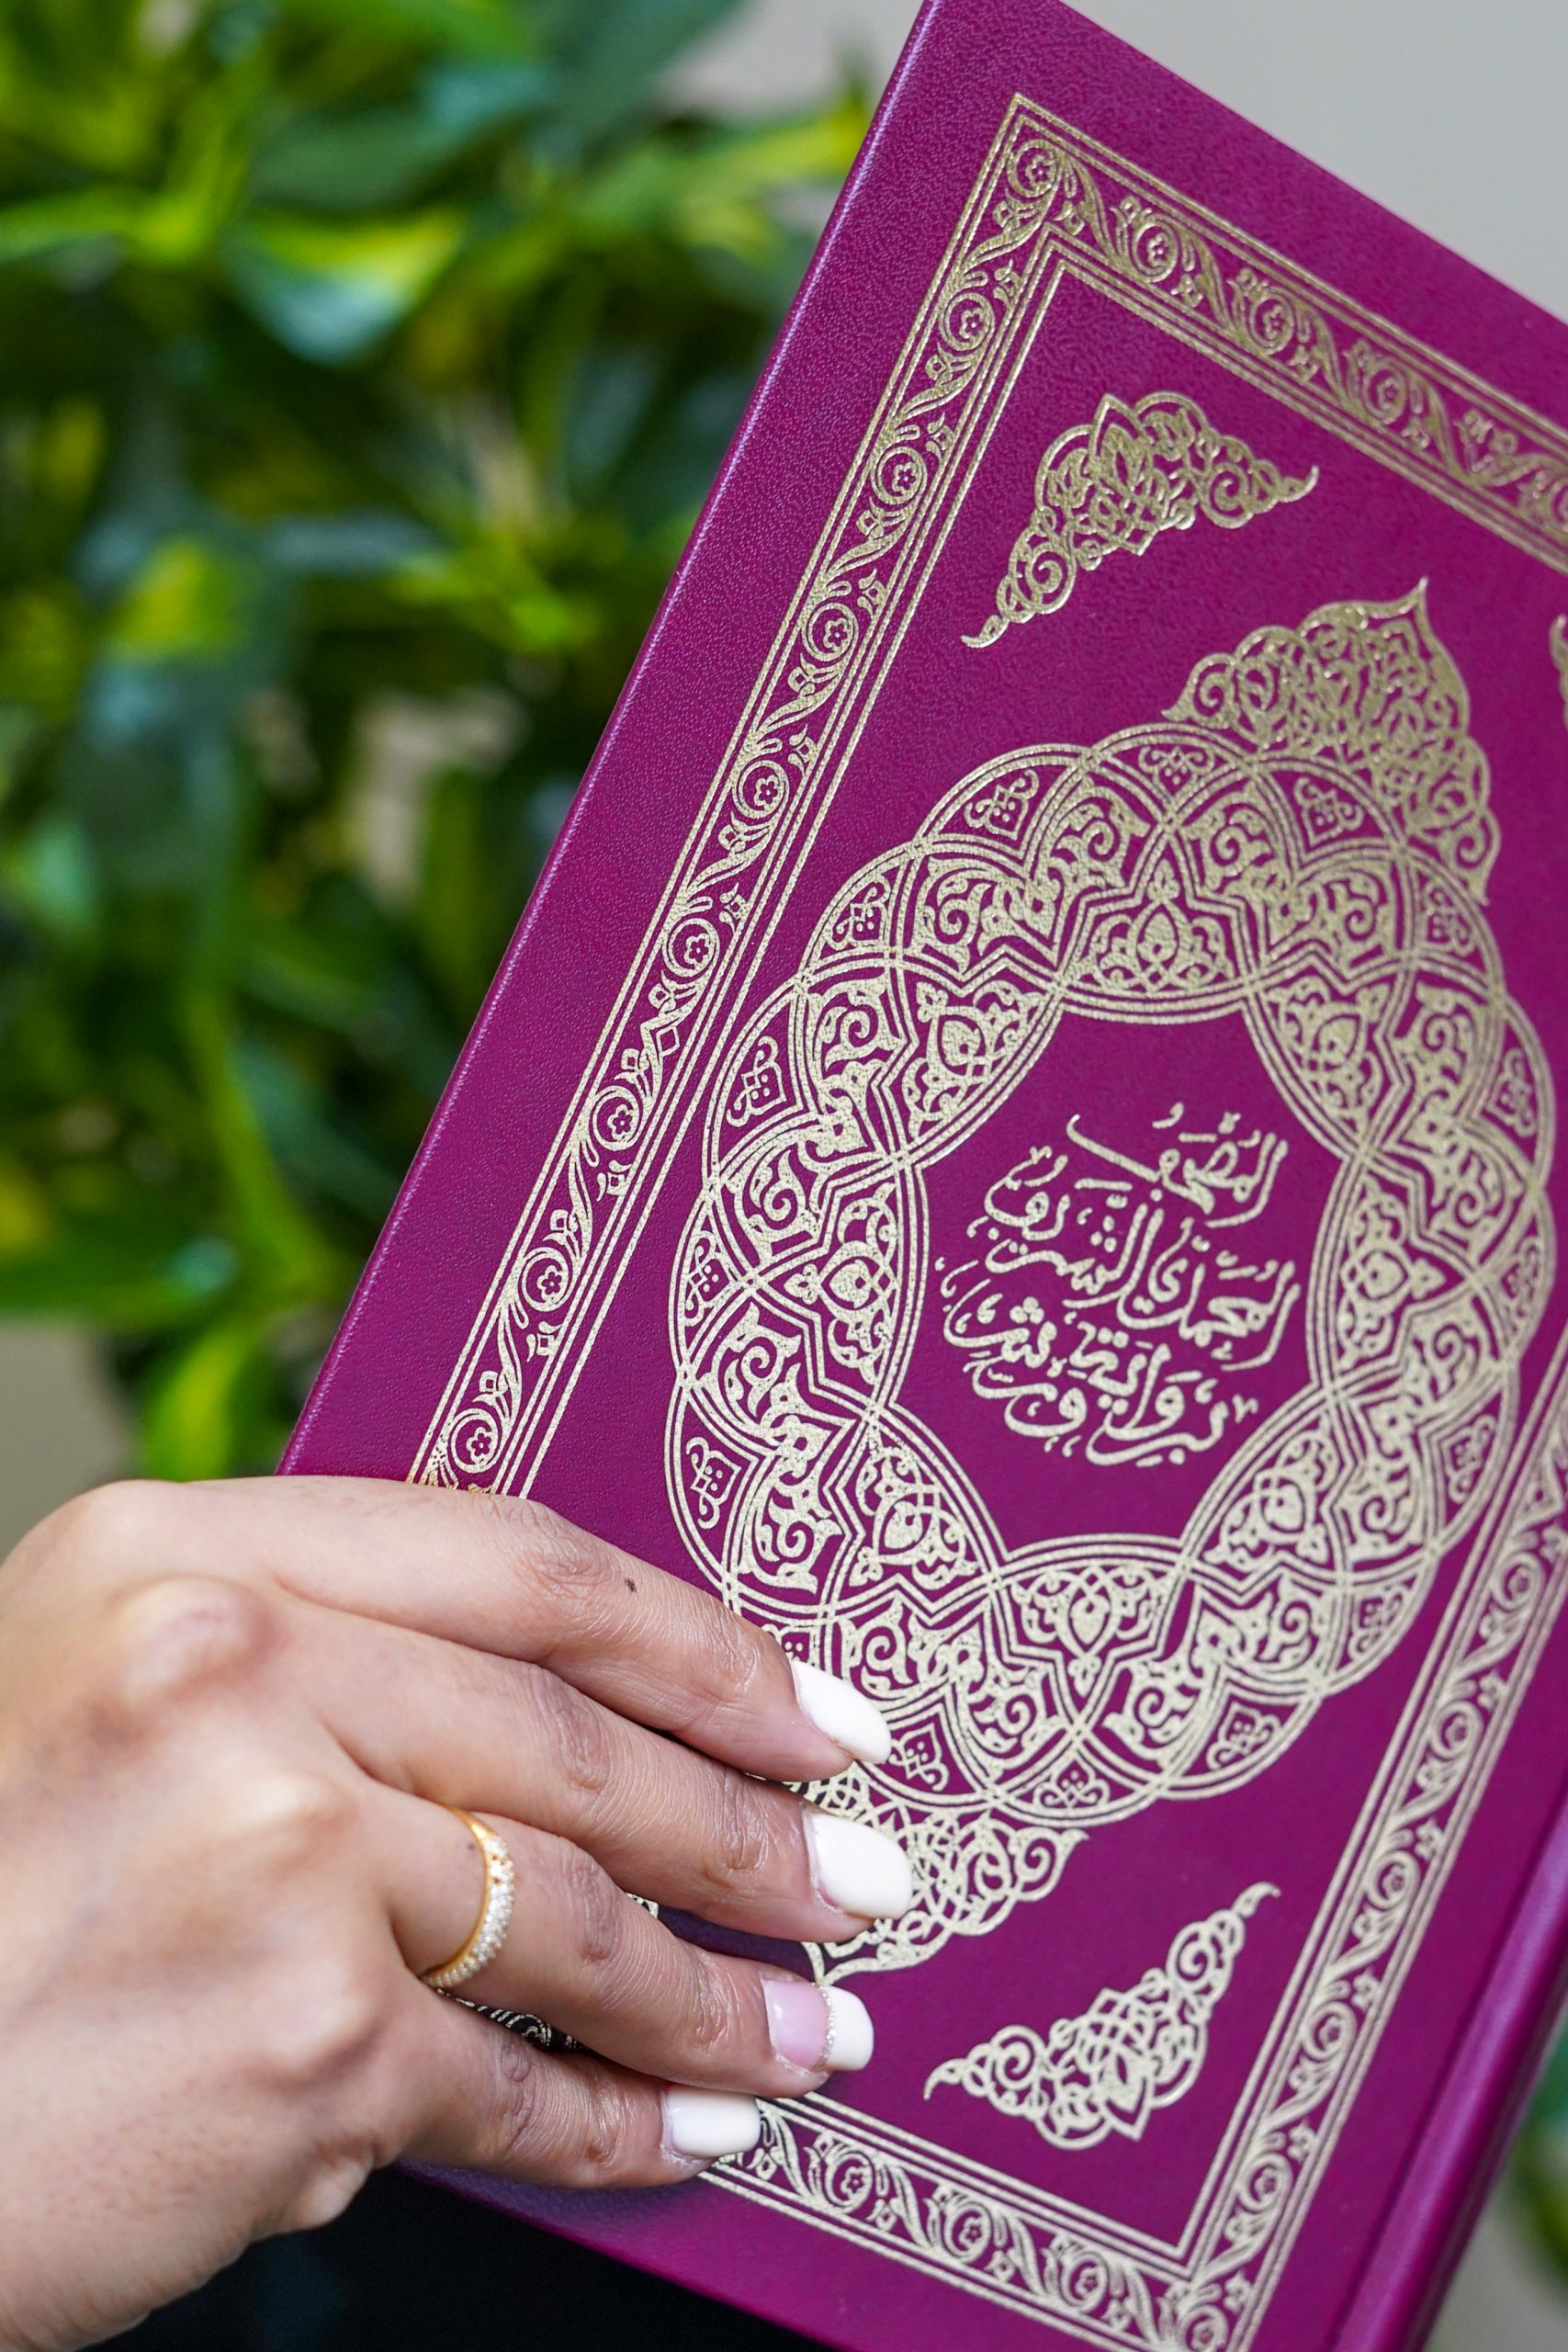 المصحف
المحمدي الشريف
برواية ورش